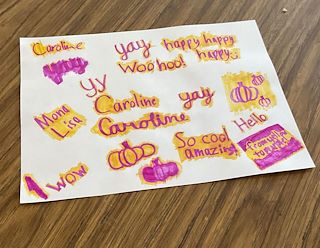 Caroline
yay
happy happy
happy
Woohoo!
yy
Caroline
yay
Mona
Lisa
Caroline
Hello
So cool
amazing!
1 wow